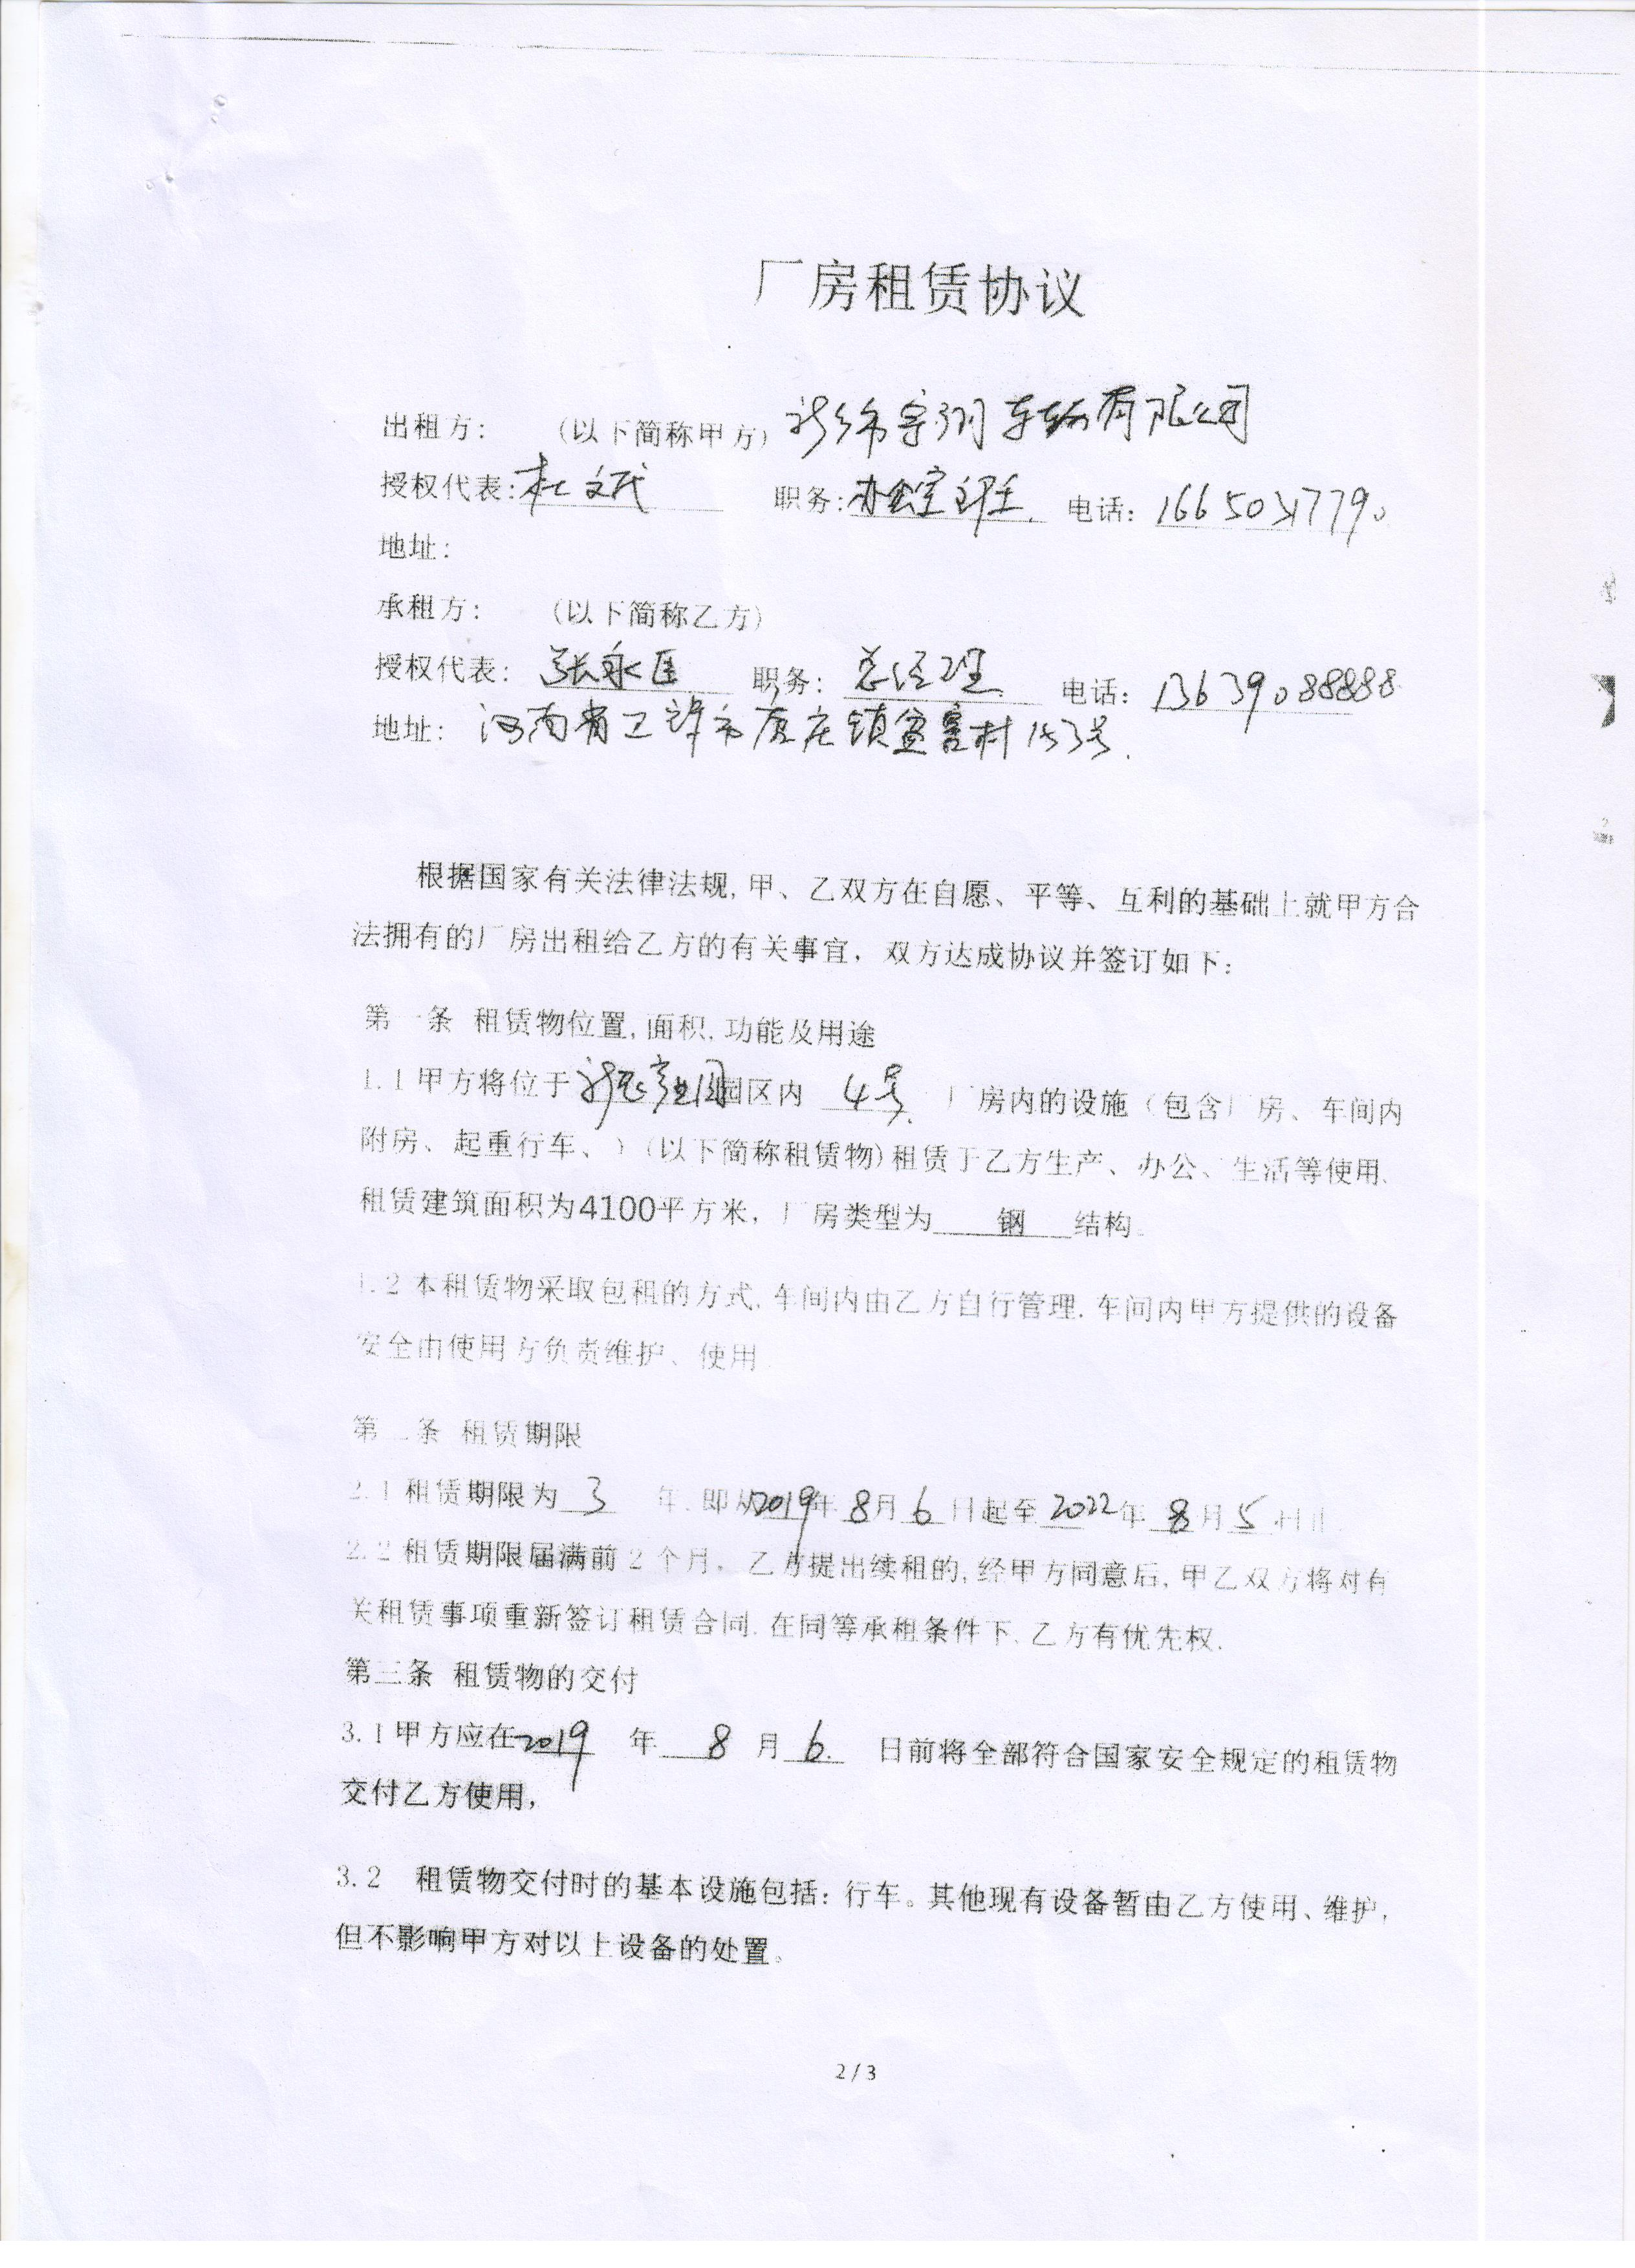 厂房租赁协议
出租方： （以下简称甲方） 宇翔车辆有限公司
授权代表：杜文武 职务：办公室主任. 电话：
地址：
承租方： （以下简称乙方）
授权代表： 张永 职务： 总经理. 电话：13639088888
地址： 河南省卫辉市唐庄镇盆窑村153号.
根据国家有关法律法规,甲、乙双方在自愿、平等、互利的基础上就甲方合
法拥有的厂房出租给乙方的有关事宜，双方达成协议并签订如下：
第一条 租赁物位置,面积,功能及用途
1.1甲方将位于 产业园园区内 4号. 厂房内的设施（包含厂房、车间内
附房、起重行车、）（以下简称租赁物)租赁于乙方生产、办公、生活等使用.
租赁建筑面积为4100平方米，厂房类型为 钢 结构.
1.2本租赁物采取包租的方式,车间内由乙方自行管理.车间内甲方提供的设备
安全由使用方负责维护、使用.
第二条 租赁期限
2.1租赁期限为 3 年.即从2019年 8月 6 日起至 2022年 8月 5日止.
2.2租赁期限届满前2个月，乙方提出续租的,经甲方同意后,甲乙双方将对有
关租赁事项重新签订租赁合同.在同等承租条件下.乙方有优先权.
第三条 租赁物的交付
3.1甲方应在2019 年 8 月 6. 日前将全部符合国家安全规定的租赁物
交付乙方使用，
3.2 租赁物交付时的基本设施包括：行车。其他现有设备暂由乙方使用、维护，
但不影响甲方对以上设备的处置。
2/3